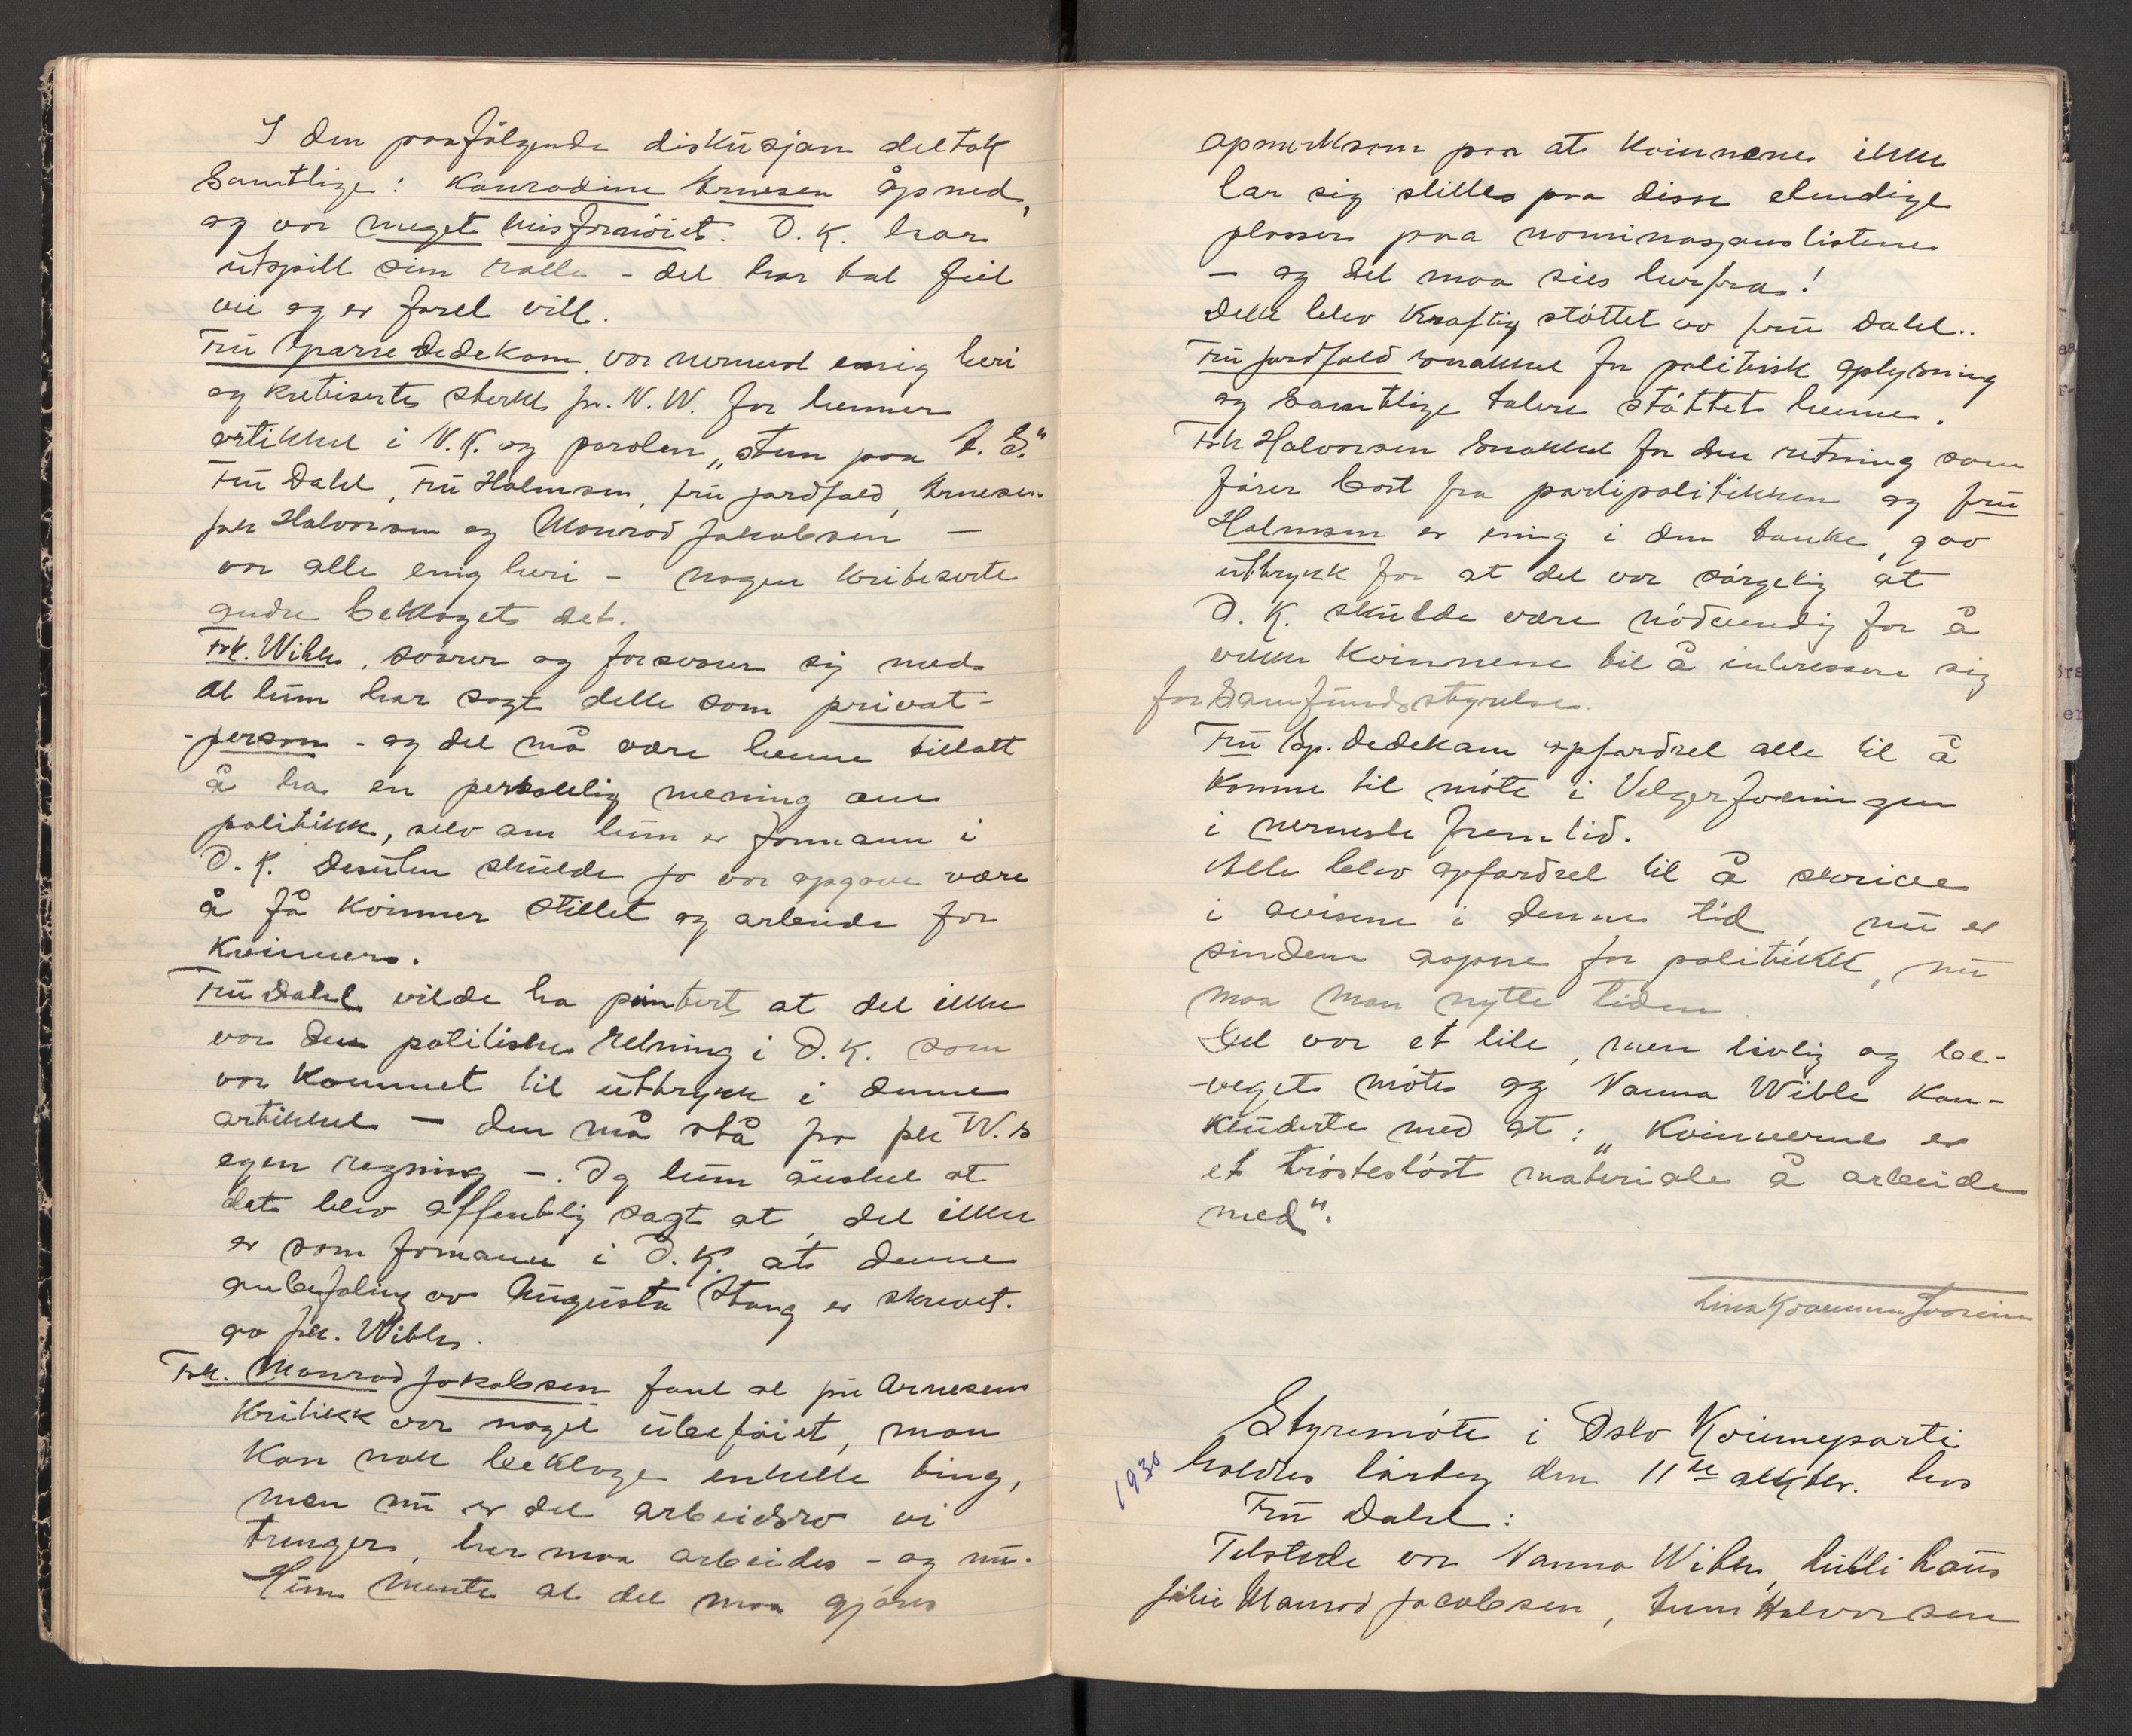 I den paafølgende diskusjon deltok
samtlige: Konradine Arnesen åpned,
og var meget misfornøiet. O.K. har
utspill sin rolle - det har tat feil
vei og er faret vill.
Fru Sparre Dedekam var nermest enig heri
og kritiserte sterkt fr. N.W. for hennes
artikkel i N.K. og parolen „Stem paa A.S."
Fru Dahl, Fru Holmsen, fru Jordfald, Arnesen
frk Halvorsen og Monrod Jakobsen —
var alle enig heri - nogen kritiserte
andre beklaget det.
Frk. Wibe, svarer og forsvarer sig med
at hun har sagt dette som privat-
-person - og det må være henne tillatt
å ha en personlig mening om
politikk, selv om hun er formann i
O.K. Desuten skulde jo vor opgave være
å få kvinner stillet og arbeide for
kvinner.
Fru Dahl vilde ha pointert at det ikke
var den politiske retning i O.K. som
var kommet til uttrykk i denne
artikkel — den må stå for frk W.s
egen regning —. Og hun ønsket at
det blev offentlig sagt at det ikke
er som formann i O.K. at denne
anbefaling av Augusta Stang er skrevet.
av frk. Wibe.
Frk. Monrad Jakobsen fant at fru Arnesens
kritikk var noget ubeføiet, man
kan nok beklage enkelte ting,
men nu er det arbeidsro vi
trenger, her maa arbeides - og nu.
Hun mente at det maa gjøres
opmerksom paa at kvinnene ikke
lar sig stilles paa disse elendige
plasser paa nominasjonslistene
— og det maa sies herfra!
Dette blev kraftig støttet av fru Dahl..
Fru Jordfald snakket for politisk oplysning
og samtlige talere støttet henne.
Frk Halvorsen snakket for den retning som
fører bort fra partipolitikken og fru
Holmsen er enig i den tanke, gav
uttrykk for at det var sørgelig at
O.K. skulde være nødvendig for å
vekke kvinnene til å interessere sig
for samfundsstyrelse.
Fru Sp. Dedekam opfordret alle til å
komme til møte i Velgerforeningen
i nermeste fremtid.
Alle blev opfordret til å skrive
i avisene i denne tid, nu er
sindene aapne for politikk, nu
maa man nytte tiden.
Det var et lite, men livlig og be-
-veget møte og Nanna Wibe kon-
kluderte med at: „Kvinnerne er
et trøstesløst materiale å arbeide
med".
Styremøte i Oslo Kvinneparti
1930
holdes lørdag den 11te oktbr. hos
Fru Dahl:
Tilstede var Nanna Wibe, Lulli Lous
Julie Monrod Jacobsen, Halvorsen